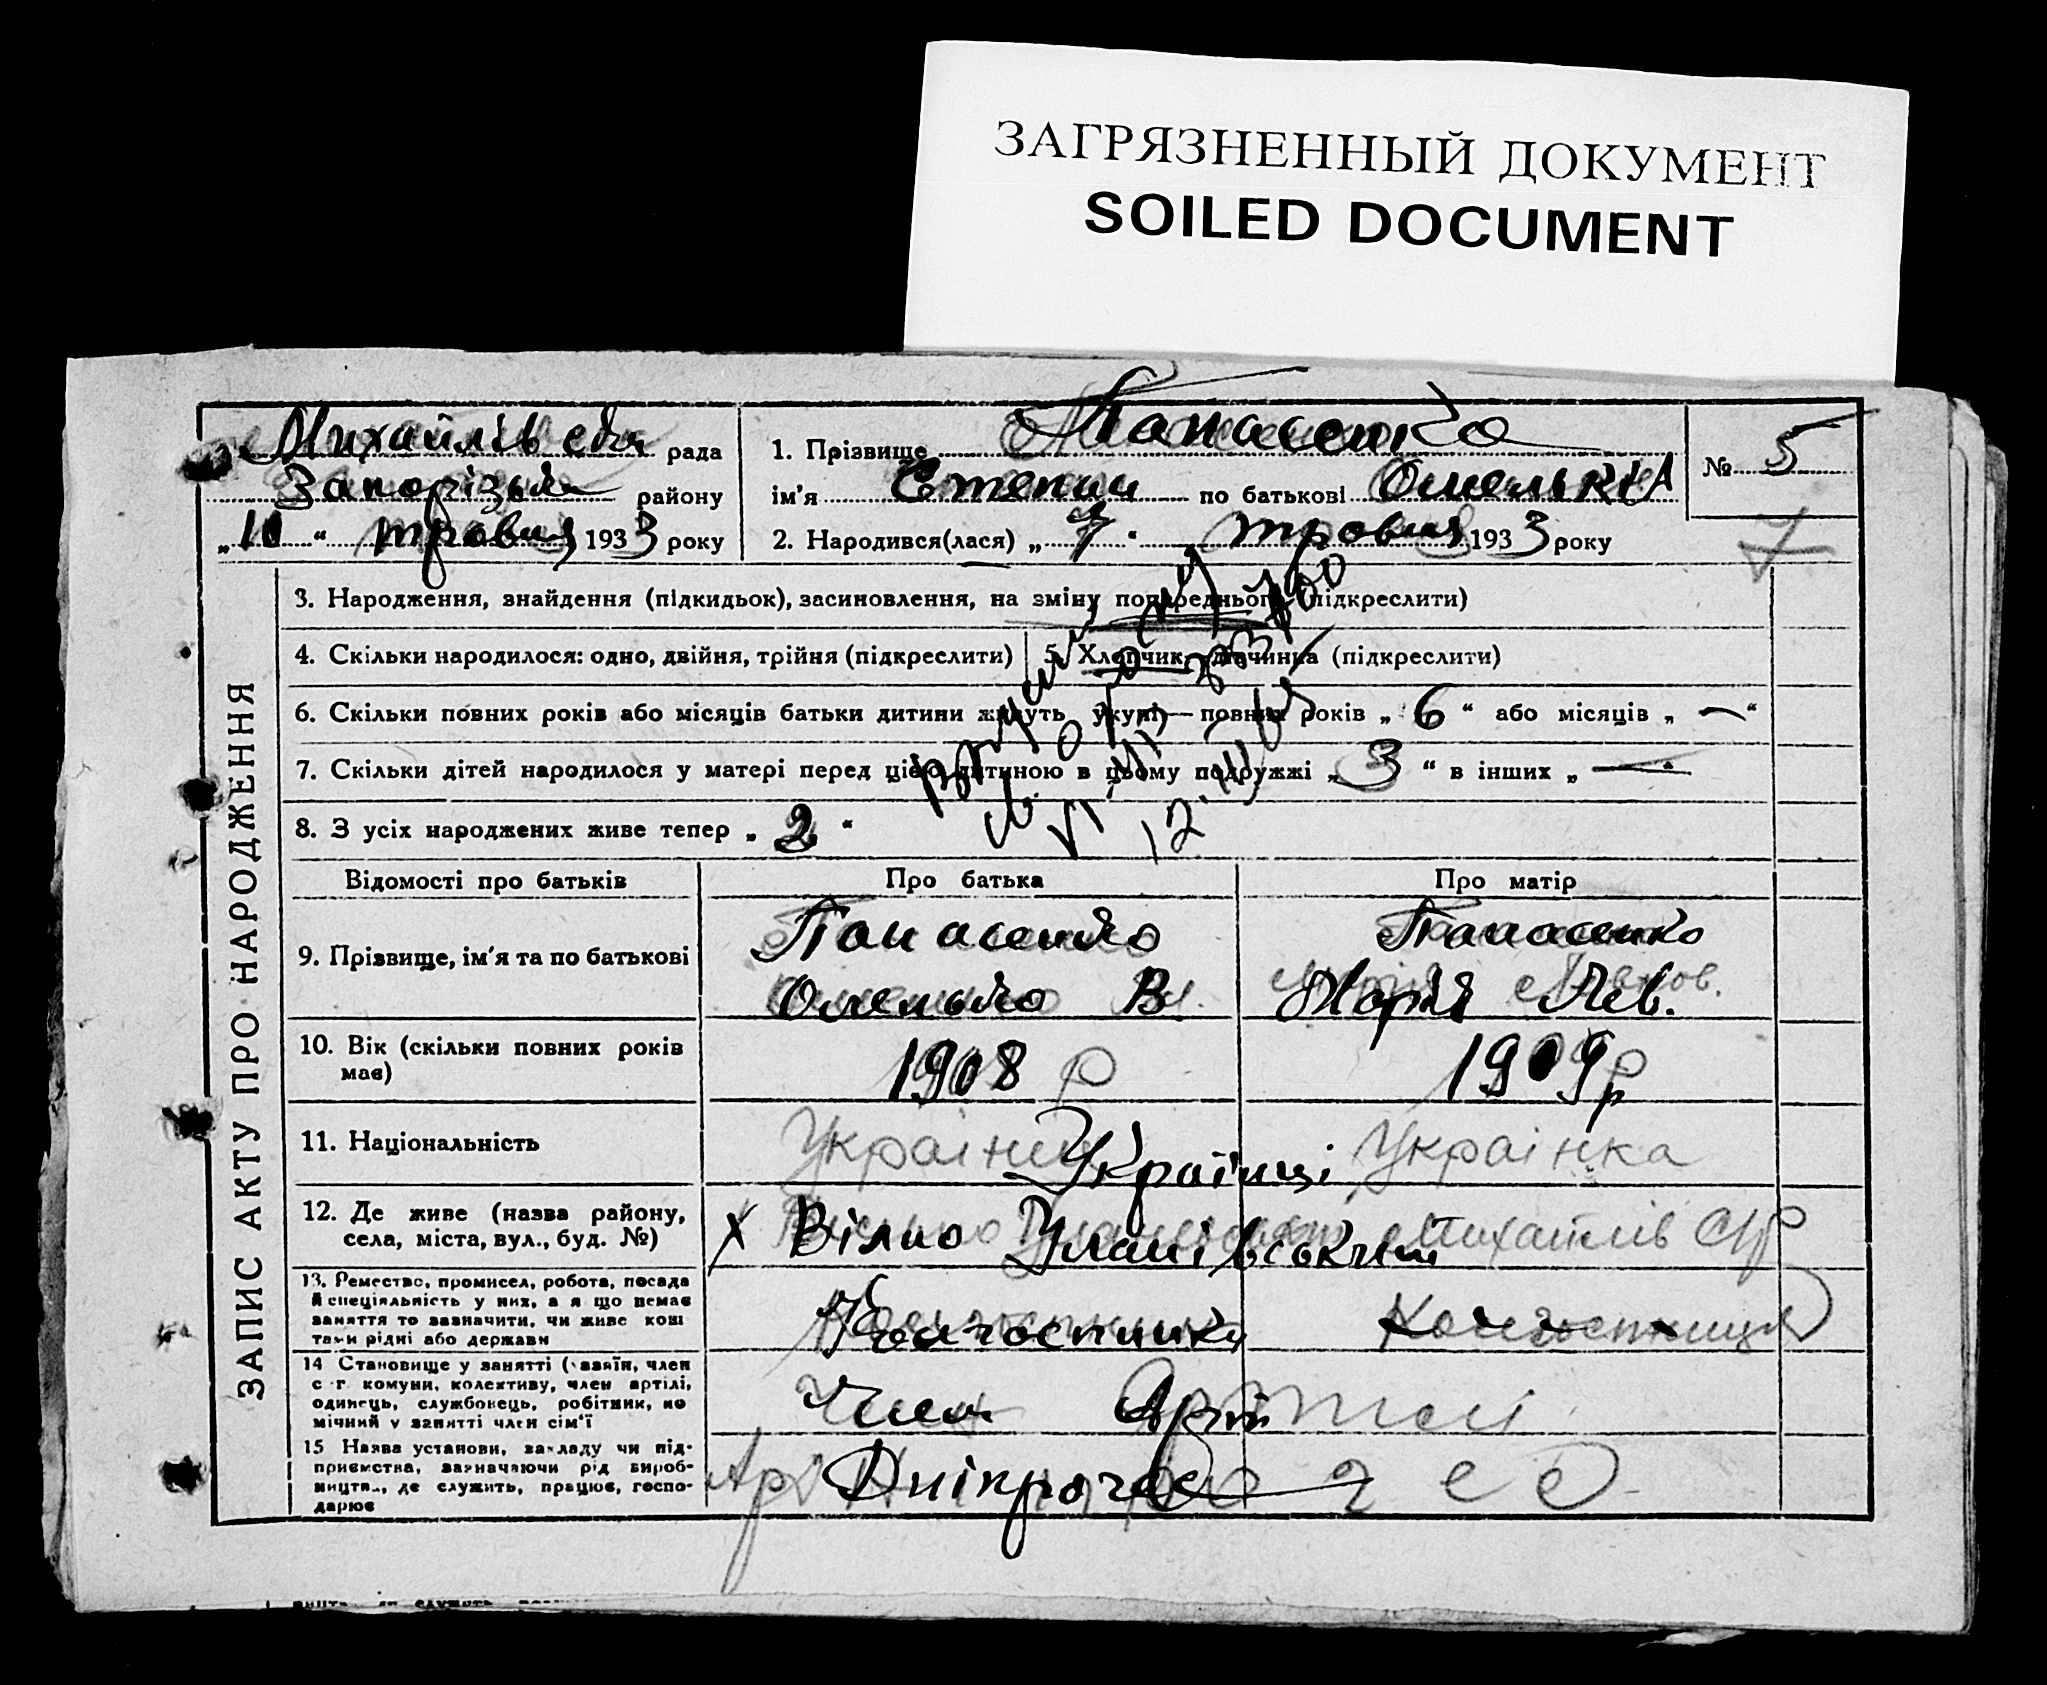 ЗАГРЯЗНЕННЫЙ ДОКУМЕНТ
SOILED DOCUMENT
Михайлівська рада
Запорізьк району
„10“ травня 1933 року
1. Прізвище Панасенко
ім'я Степан по батькові Омелькі
2. Народився(лася) „7“ травня 1933 року
№ 5
7
ЗАПИС АКТУ ПРО НАРОДЖЕННЯ
3. Народження, знайдення (підкидьок), засиновлення, на зміну попереднього (підкреслити)
4. Скільки народилося: одно, двійня, трійня (підкреслити)
5. Хлопчик, дівчинка (підкреслити)
6. Скільки повних років або місяців батьки дитини живуть укупі— повних років „6“ або місяців „—“
7. Скільки дітей народилося у матері перед цією дитиною в цьому подружжі „3“ в інших „—“
8. З усіх народжених живе тепер „2“
Відомості про батьків
Про батька
Про матір
9. Прізвище, ім'я та по батькові
Панасенко
Омелько В.
Панасенко
Марія Лев.
10. Вік (скільки повних років має)
1908 р
1909 р
11. Національність
Українці
Українка
12. Де живе (назва району, села, міста, вул., буд. №)
х Вільно Уланівський Михайлів С/Р
13. Ремество, промисел, робота, посада
й спеціяльність у них, а я що немає
заняття то зазначити, чи живе кош
тами рідні або держави
Колгоспники
Колгоспниця
14 Становище у занятті (хазяїн, член
с-г комуни, колективу, член артілі,
одинець, службовець, робітник, по
мічний у занятті член сім'ї
Член Артілі
15 Назва установи, закладу чи під-
приємства, зазначаючи рід вироб-
ництв., де служить, працює, госпо-
дарює
Дніпрогес